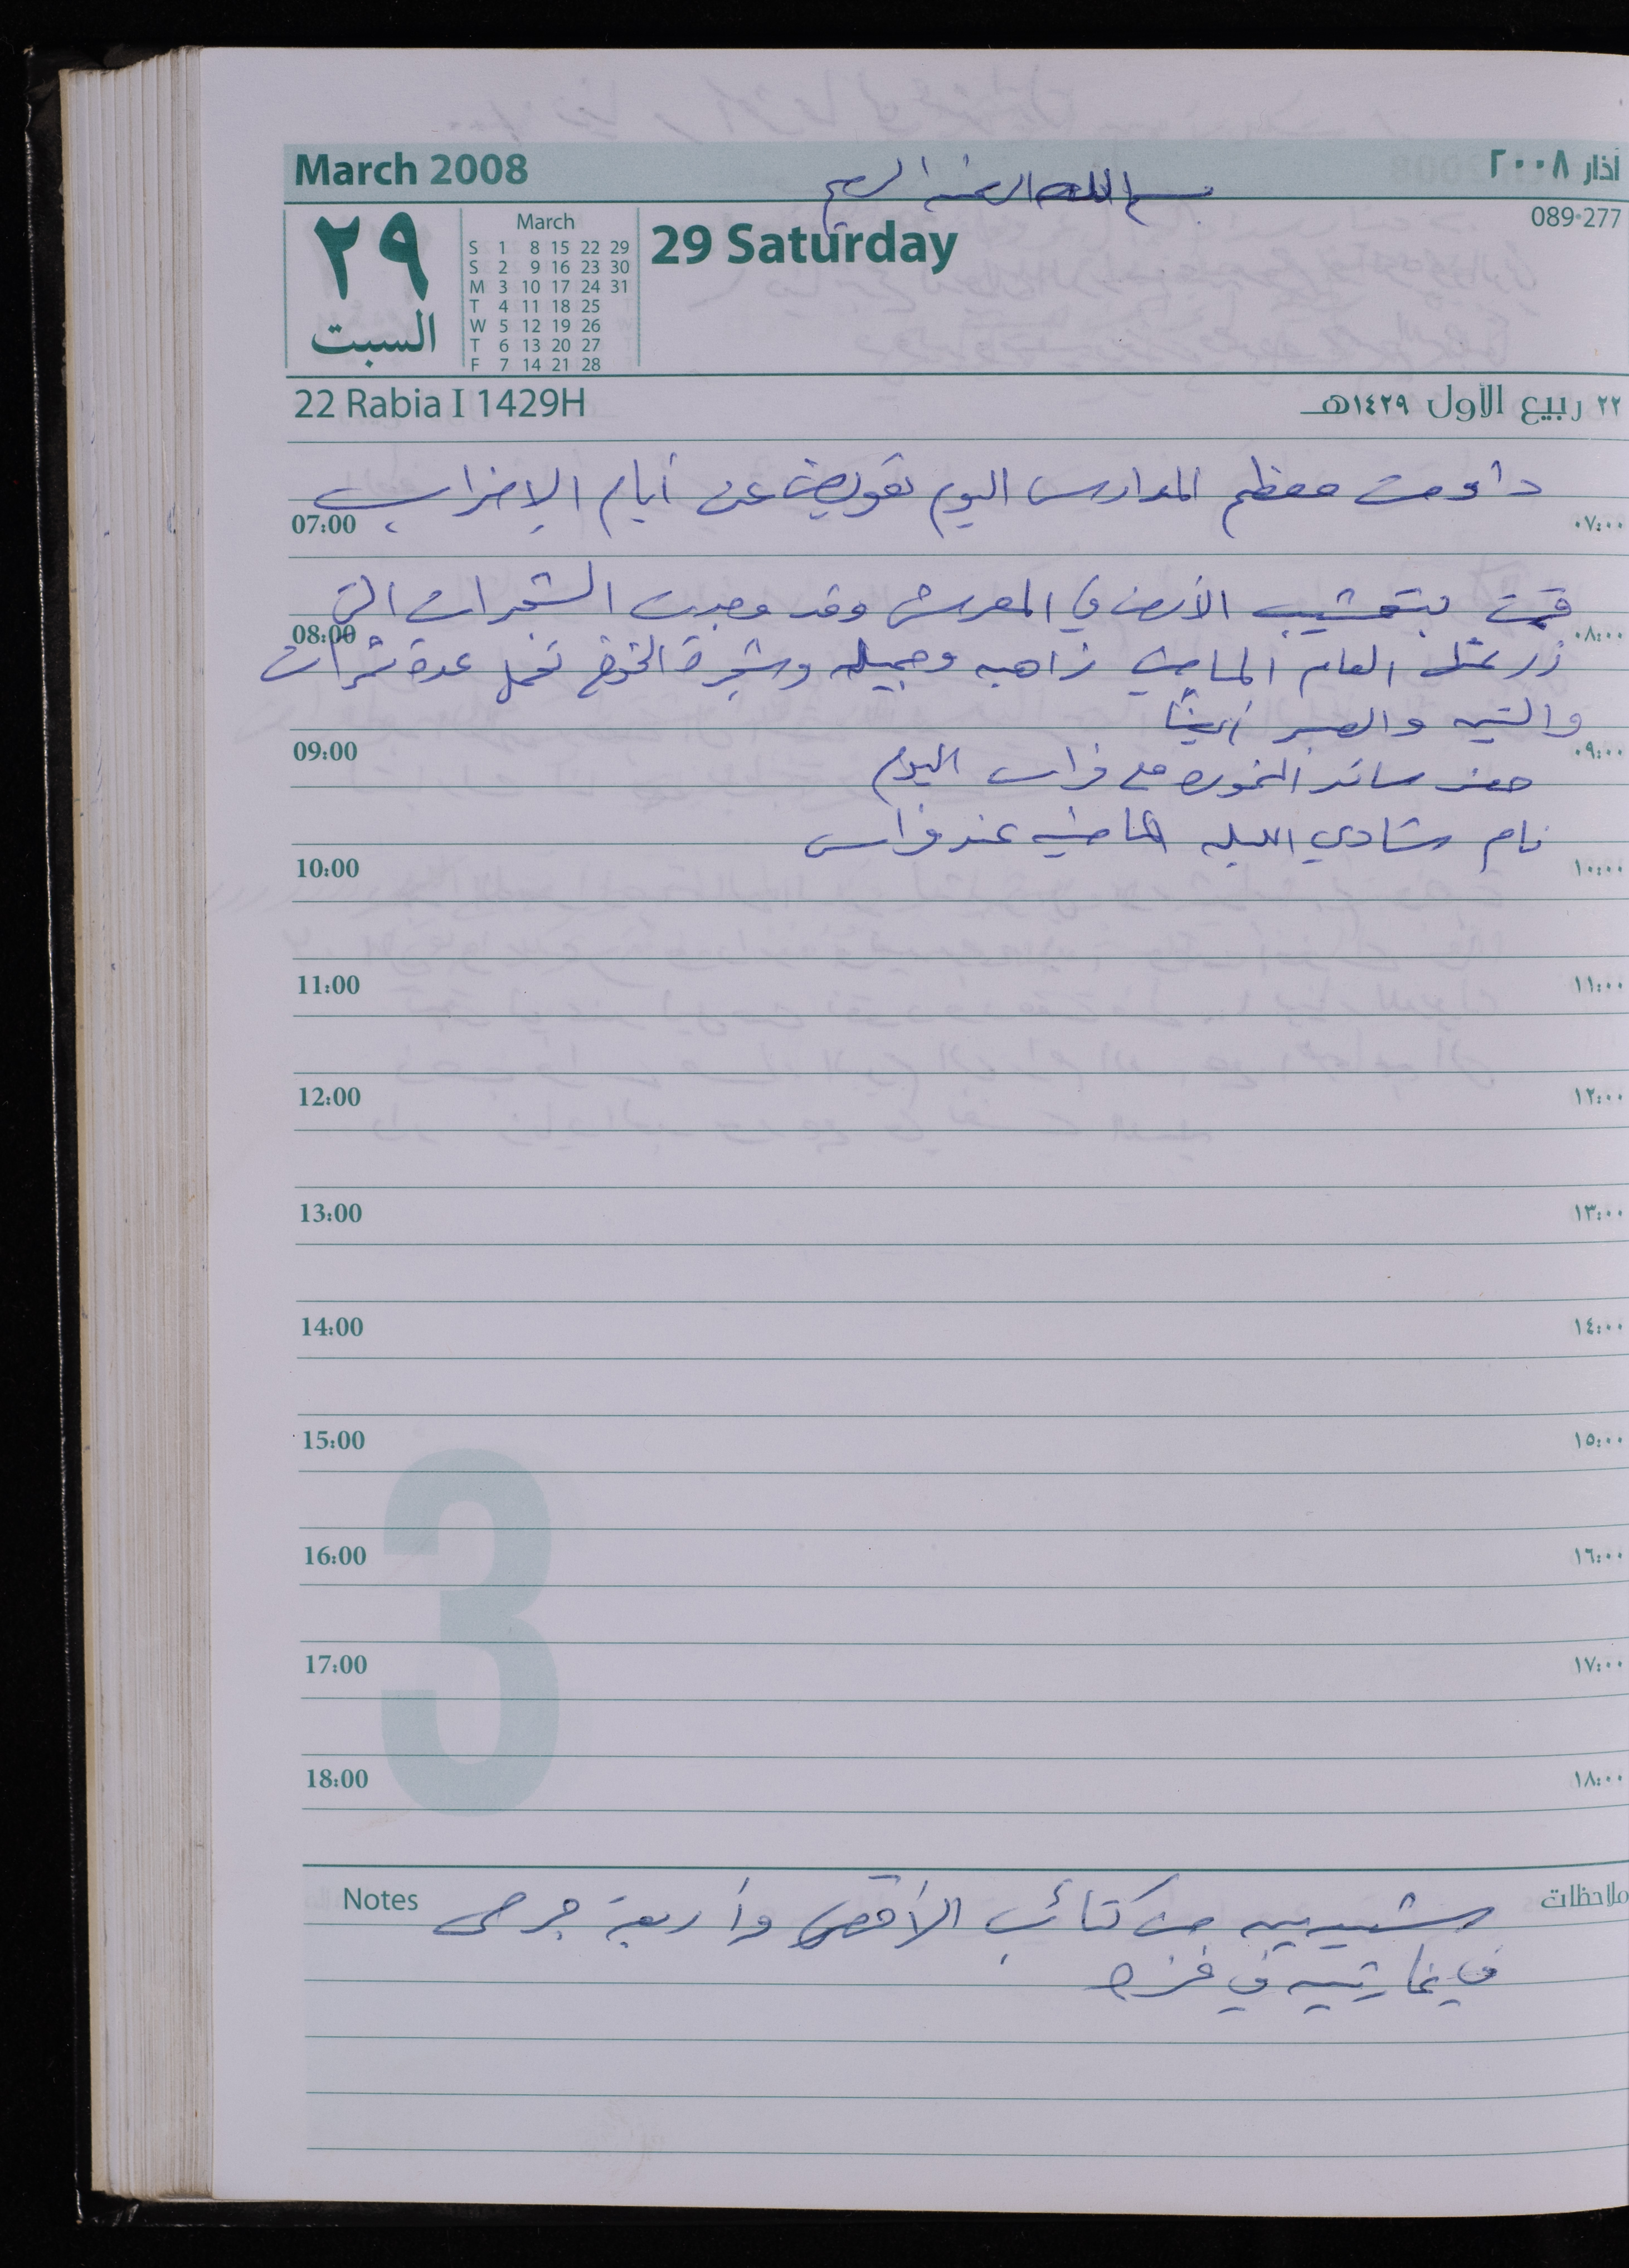 March 2008
آذار ٢٠٠٨
بسم الله الرحمن الرحيم
089-277
٢٩
السبت
March
S 1 8 15 22 29
S 2 9 16 23 30
M 3 10 17 24 31
T 4 11 18 25
W 5 12 19 26
T 6 13 20 27
F 7 14 21 28
29 Saturday
22 Rabia I 1429H
٢٢ ربيع الأول ١٤٢٩هـ
داومت معظم المدارس اليوم تعويض عن أيام الإضراب
07:00 ٠٧:٠٠
قمت بتعشيب الأرض في المعرش وقد وجدت الشجرات التي
08:00 ٠٨:٠٠
زرعتها العام الماضي زاهيه وجميله وشجرة الخوخ تحمل عدة ثمرات
والتين والصبر أيضاً
09:00 ٠٩:٠٠
حضر سائد مع فراس اليوم
نام شادي الليله الماضيه عند فراس
10:00 ١٠:٠٠
11:00 ١١:٠٠
12:00 ١٢:٠٠
13:00 ١٣:٠٠
14:00 ١٤:٠٠
15:00 ١٥:٠٠
16:00 ١٦:٠٠
17:00 ١٧:٠٠
18:00 ١٨:٠٠
3
Notes ملاحظات
شهيدين من كتائب الأقصى وأربعة جرحى
في غارتين في غزه